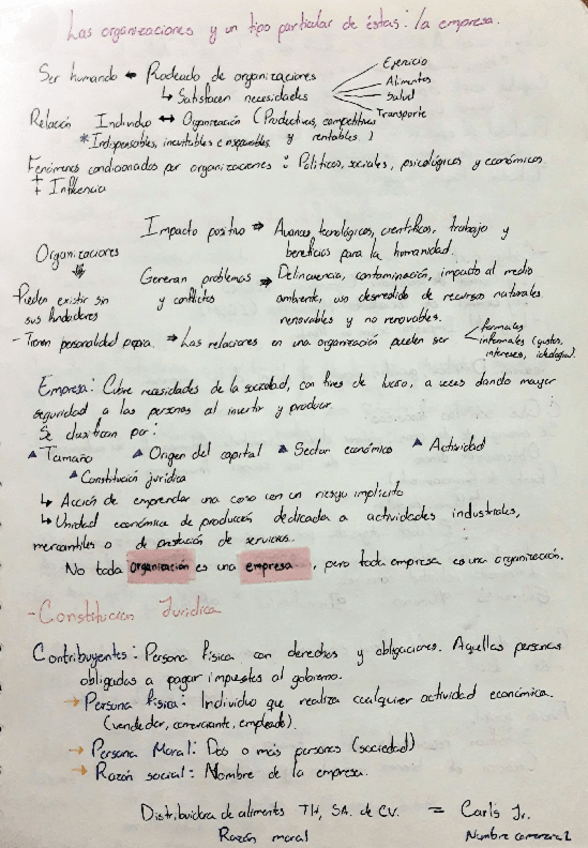 Las organizaciones y un tipo particular de éstas: la empresa.
Ser humano ← Rodeado de organizaciones
↳ Satisfacen necesidades
Ejercicio
Alimentos
Salud
Transporte
Relación Individuo ↔ Organización (Productivas, competitivas y rentables.)
* Indispensables, inevitables e inseparables
Fenómenos condicionados por organizaciones: Políticos, sociales, psicológicos y económicos
+ Influencia
Organizaciones
Impacto positivo ⇒ Avances tecnológicos, científicos, trabajo y
beneficios para la humanidad.
Generan problemas y conflictos ⇒ Delincuencia, contaminación, impacto al medio
ambiente, uso desmedido de recursos naturales
renovables y no renovables.
Pueden existir sin
sus fundadores
- Tienen personalidad propia. ⇒ Las relaciones en una organización pueden ser
formales
informales (gustos,
intereses, ideologías).
Empresa: Cubre necesidades de la sociedad, con fines de lucro, a veces dando mayor
seguridad a las personas al invertir y producir.
Se clasifican por:
▲ Tamaño ▲ Origen del capital ▲ Sector económico ▲ Actividad
▲ Constitución jurídica
↳ Acción de emprender una cosa con un riesgo implícito
↳ Unidad económica de producción dedicada a actividades industriales,
mercantiles o de prestación de servicios.
No toda organización es una empresa, pero toda empresa es una organización.
- Constitución Jurídica
Contribuyentes: Persona física con derechos y obligaciones. Aquellas personas
obligadas a pagar impuestos al gobierno.
→ Persona física: Individuo que realiza cualquier actividad económica.
(vendedor, comerciante, empleado).
→ Persona Moral: Dos o más personas (sociedad)
→ Razón social: Nombre de la empresa.
Distribuidora de alimentos TH, SA. de CV. = Carl's Jr.
Razón moral Nombre comercial